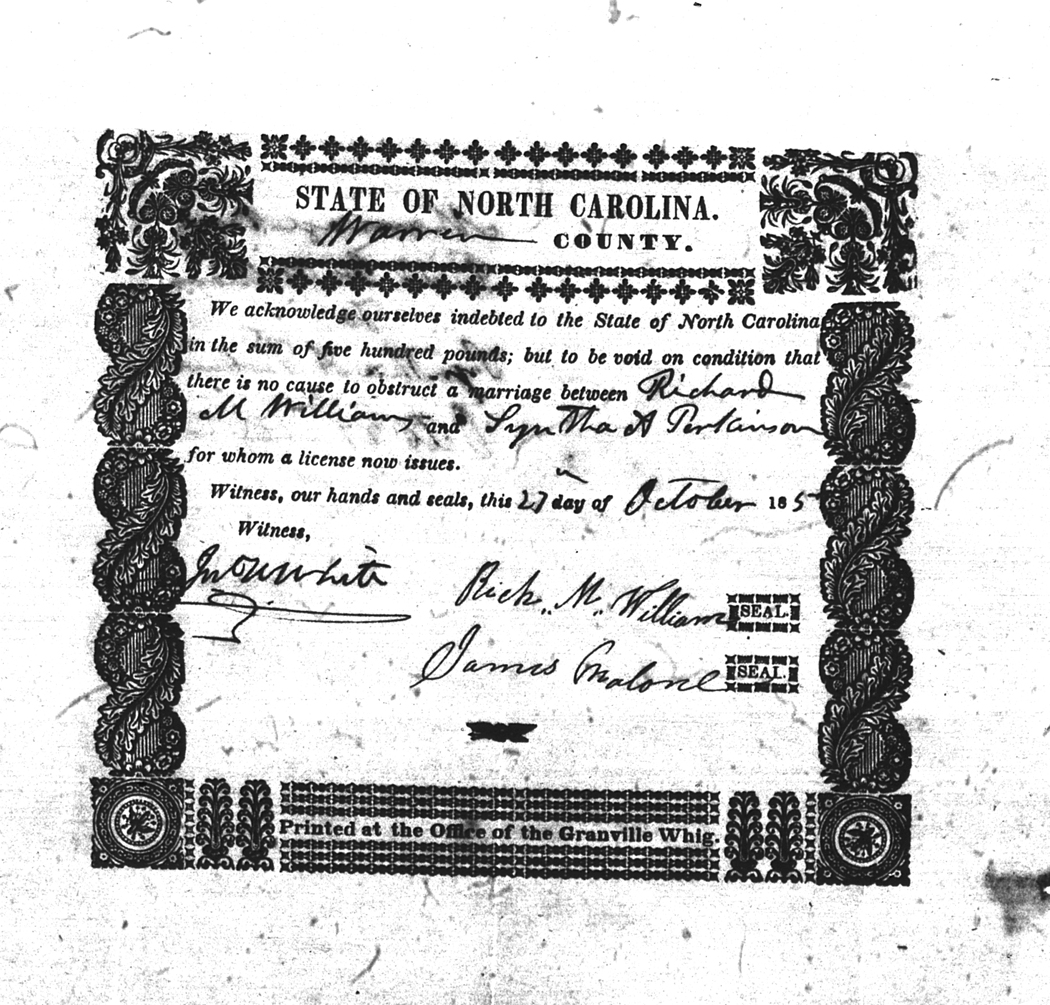 STATE OF NORTH CAROLINA.
Warren COUNTY.
We acknowledge ourselves indebted to the State of North Carolina
in the sum of five hundred pounds; but to be void on condition that
there is no cause to obstruct a marriage between Richard
M Williams and Syntha A Perkinson
for whom a license now issues.
Witness, our hands and seals, this 27 day of October 185
Witness,
Jno W White
Rich. M. Williams SEAL.
James Malone SEAL.
Printed at the Office of the Granville Whig.